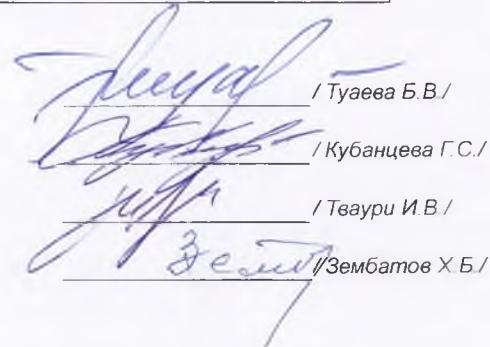 / Туаева Б.В./
/ Кубанцева Г.С./
/ Тваури И.В./
/Зембатов Х.Б./